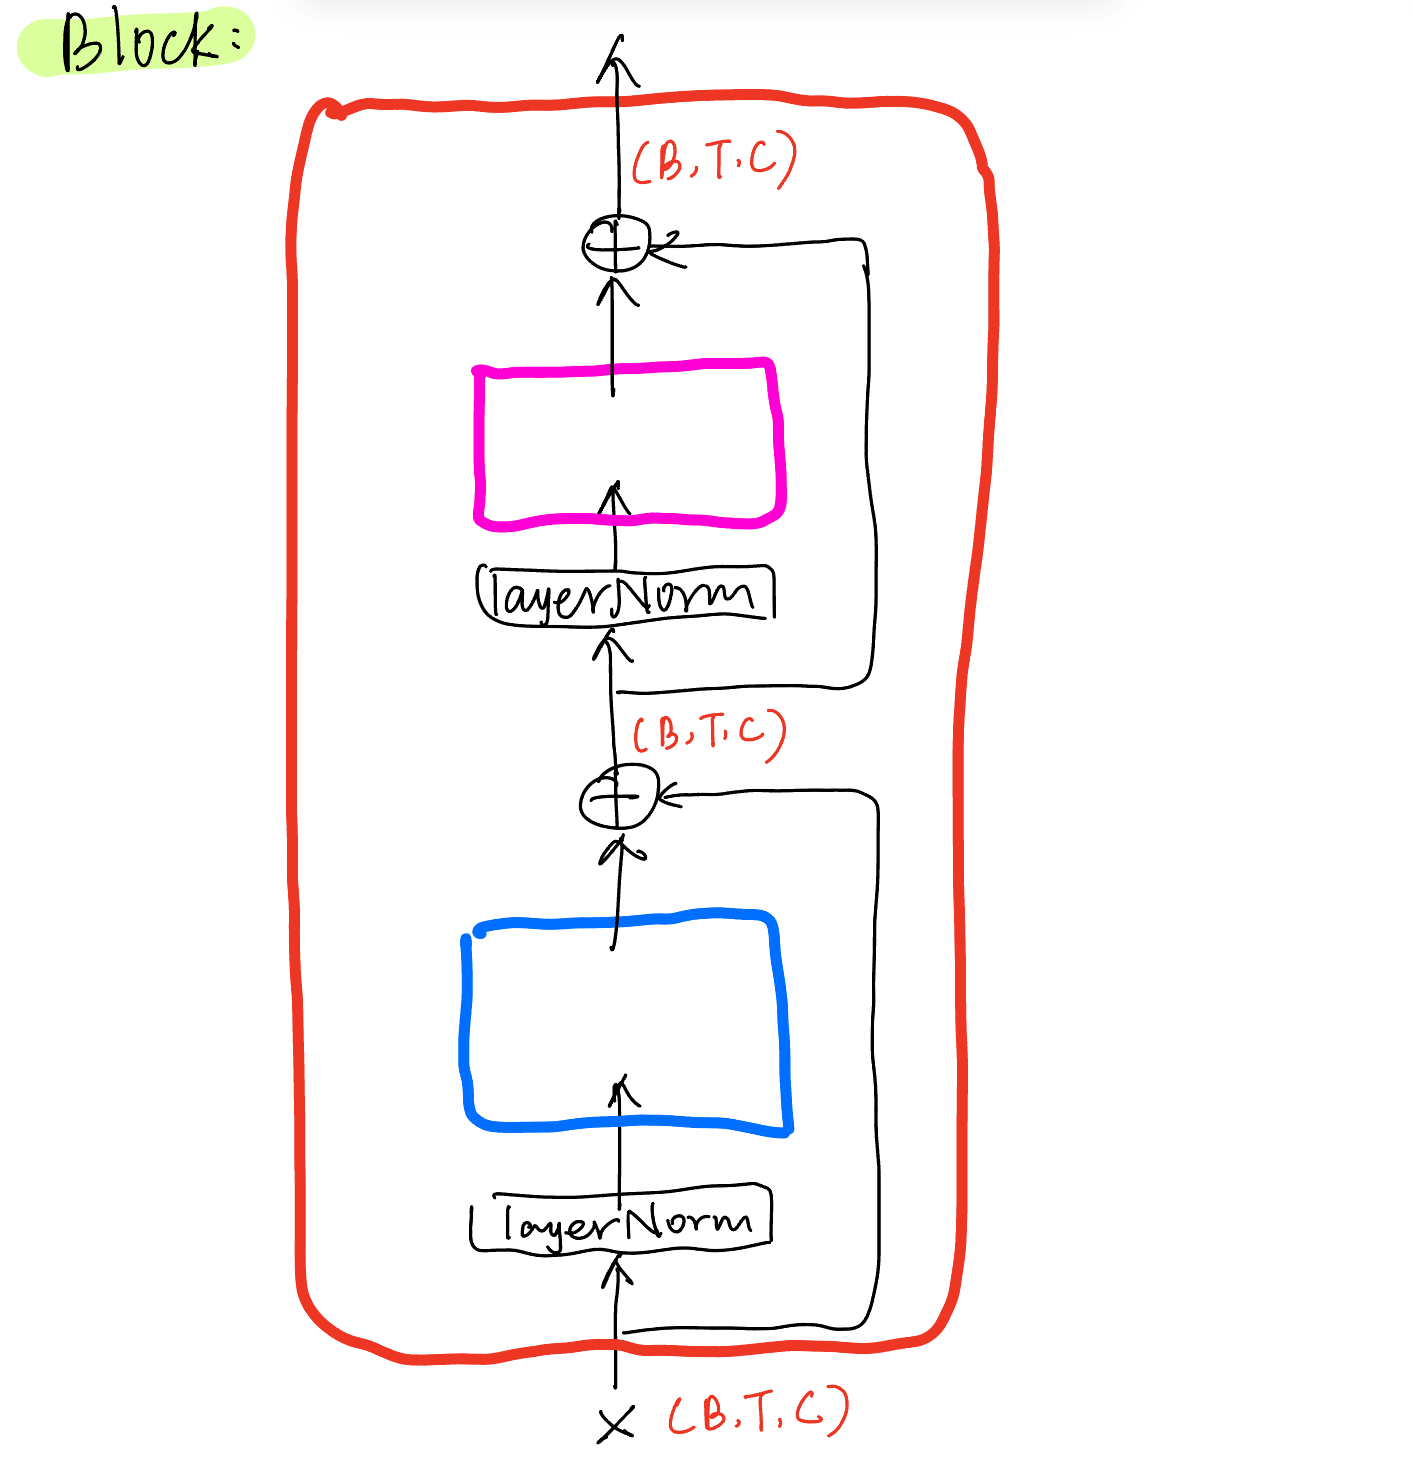 Block:
(B,T,C)
layerNorm
(B,T,C)
layerNorm
X (B,T,C)